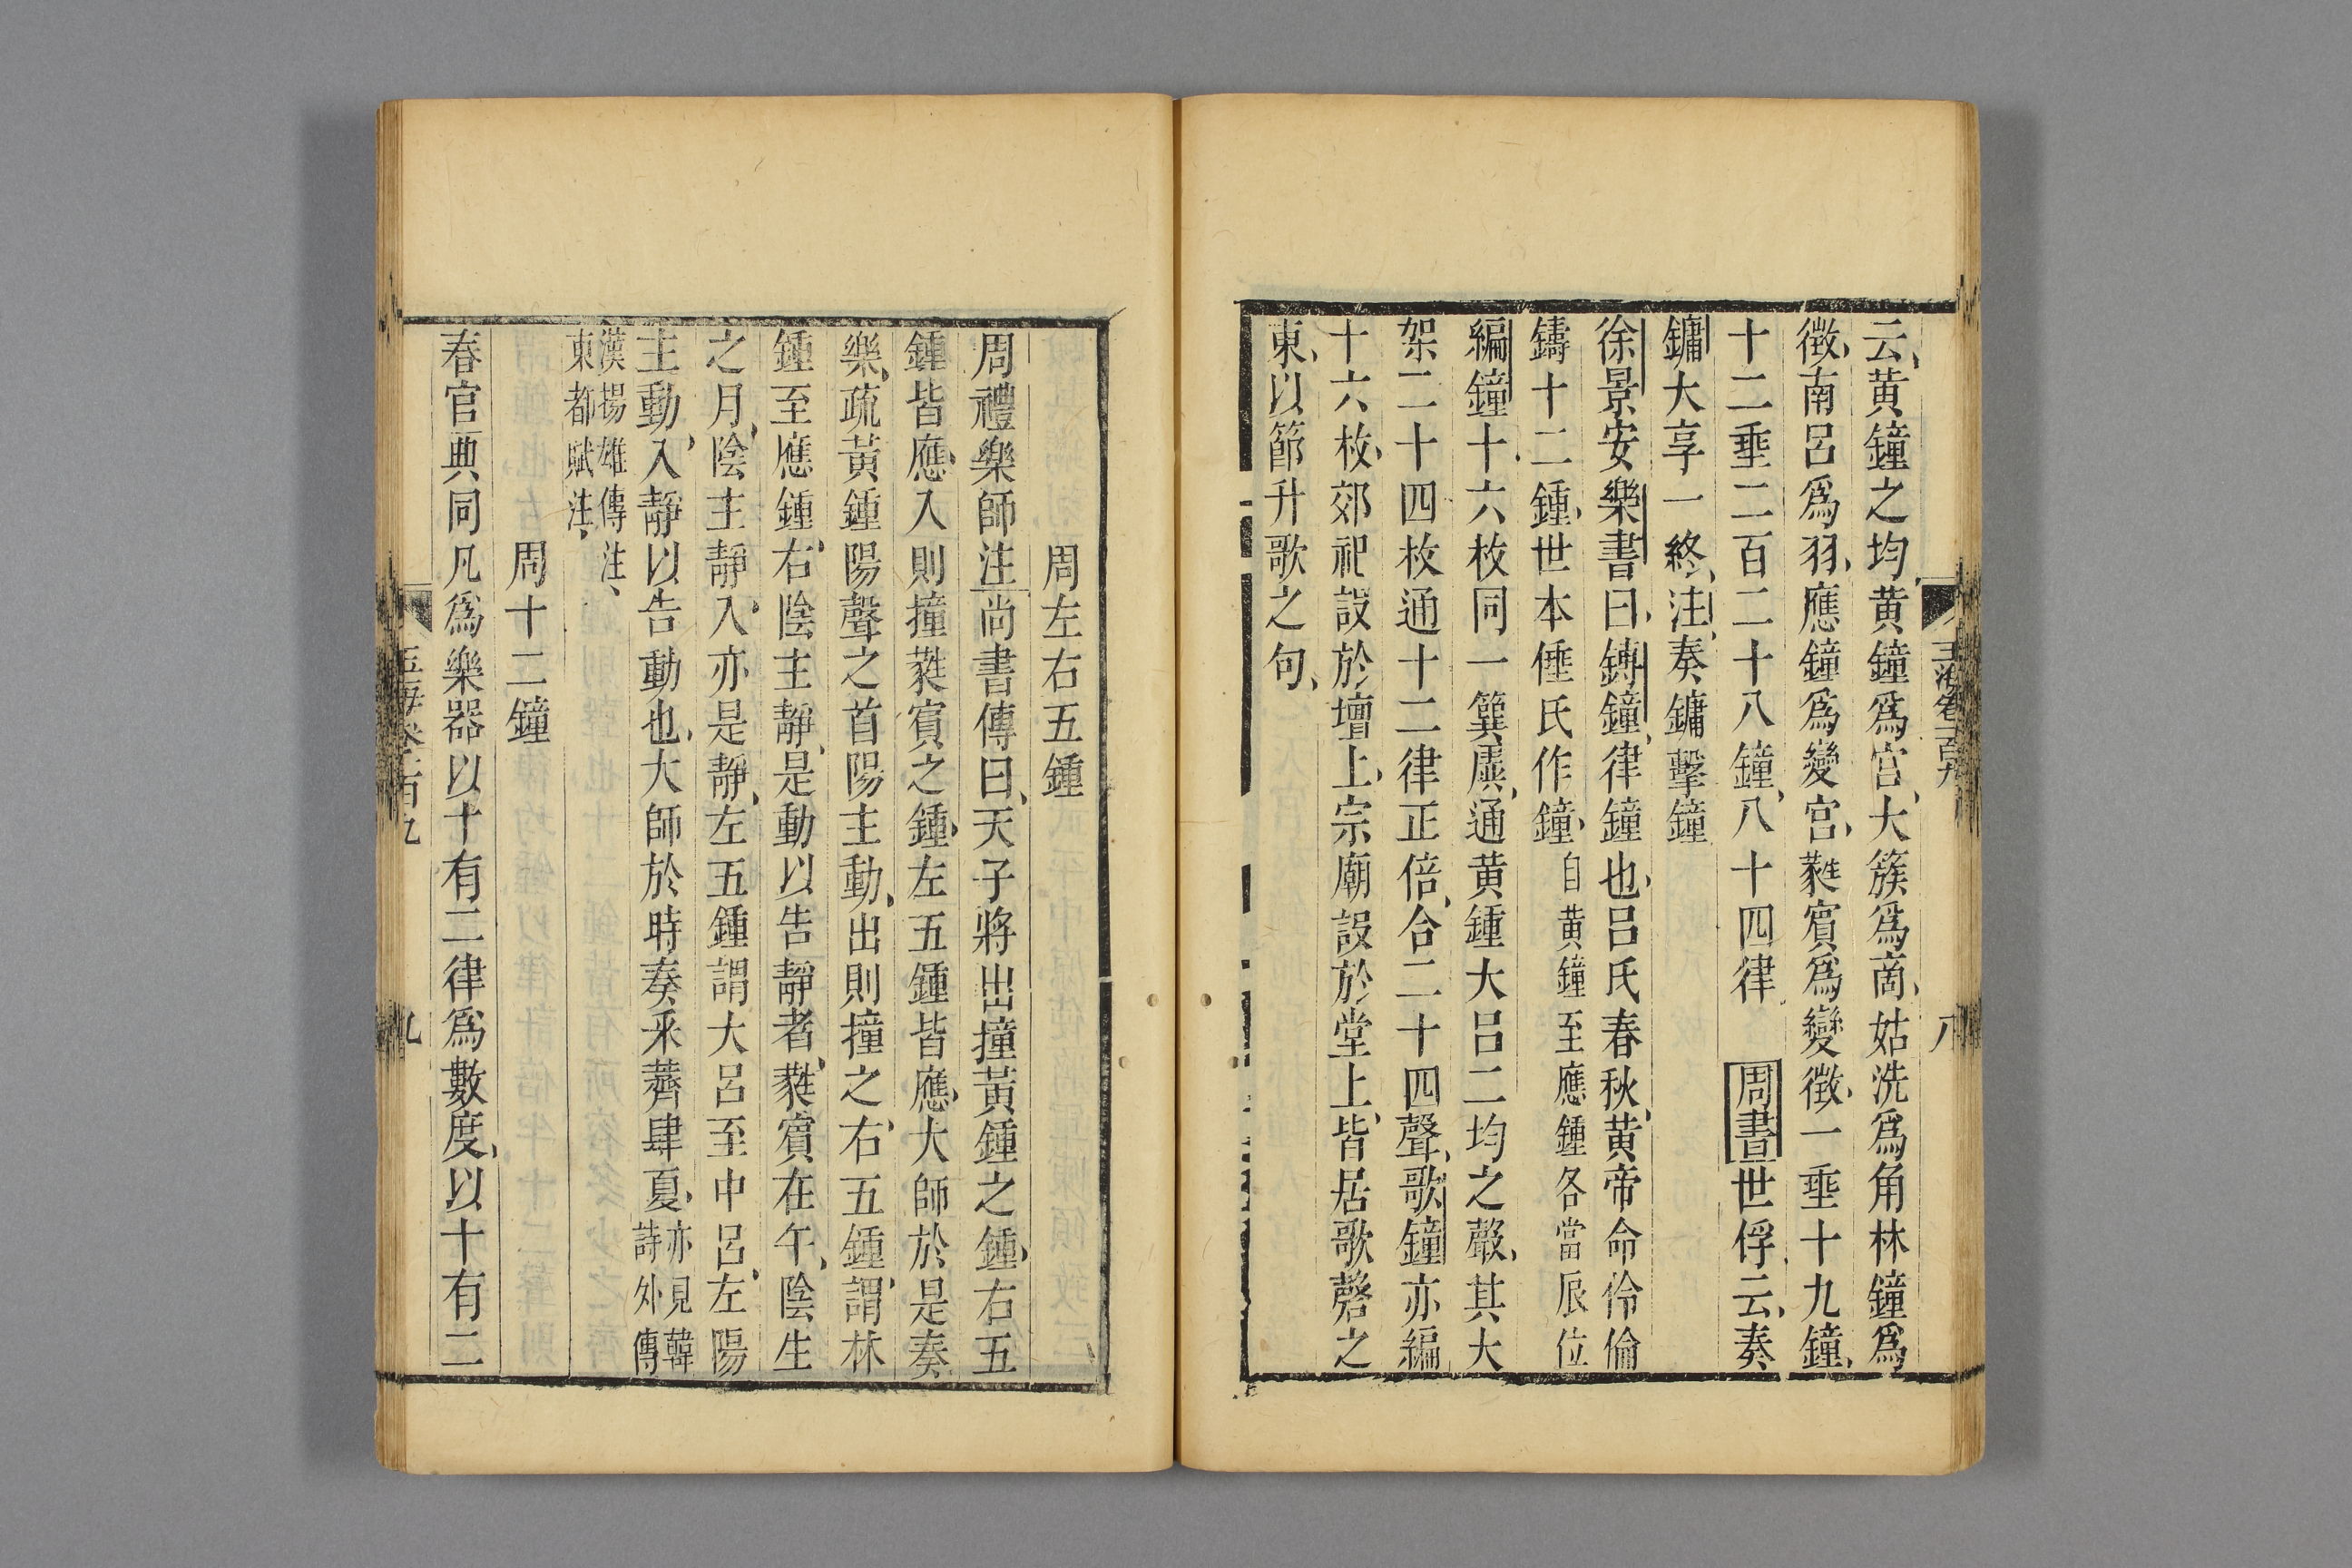 玉海卷一百九
八
云黄鐘之均黄鐘爲宫大簇爲商姑洗爲角林鐘爲
徵南呂爲羽應鐘爲變宫蕤賓爲變徵一埀十九鐘
十二埀二百二十八鐘八十四律 周書世俘云奏
鏞大享一終注奏鏞擊鐘
徐景安樂書曰鎛鐘律鐘也呂氏春秋黄帝命伶倫
鑄十二鍾世本倕氏作鐘自黄鐘至應鍾各當辰位
編鐘十六枚同一簨虡通黄鍾大呂二均之聲其大
架二十四枚通十二律正倍合二十四聲歌鐘亦編
十六枚郊祀設於壇上宗廟設於堂上皆居歌磬之
東以節升歌之句
周左右五鍾
周禮樂師注尚書傳曰天子將出撞黃鍾之鍾右五
鍾皆應入則撞蕤賓之鍾左五鍾皆應大師於是奏
樂疏黃鍾陽聲之首陽主動出則撞之右五鍾謂林
鍾至應鍾右陰主靜是動以告靜者蕤賓在午陰生
之月陰主靜入亦是靜左五鍾謂大呂至中呂左陽
主動入靜以告動也大師於時奏采薺肆夏亦見韓
詩外傳
漢揚雄傳注
東都賦注
周十二鐘
春官典同凡爲樂器以十有二律爲數度以十有二
玉海卷一百九
九